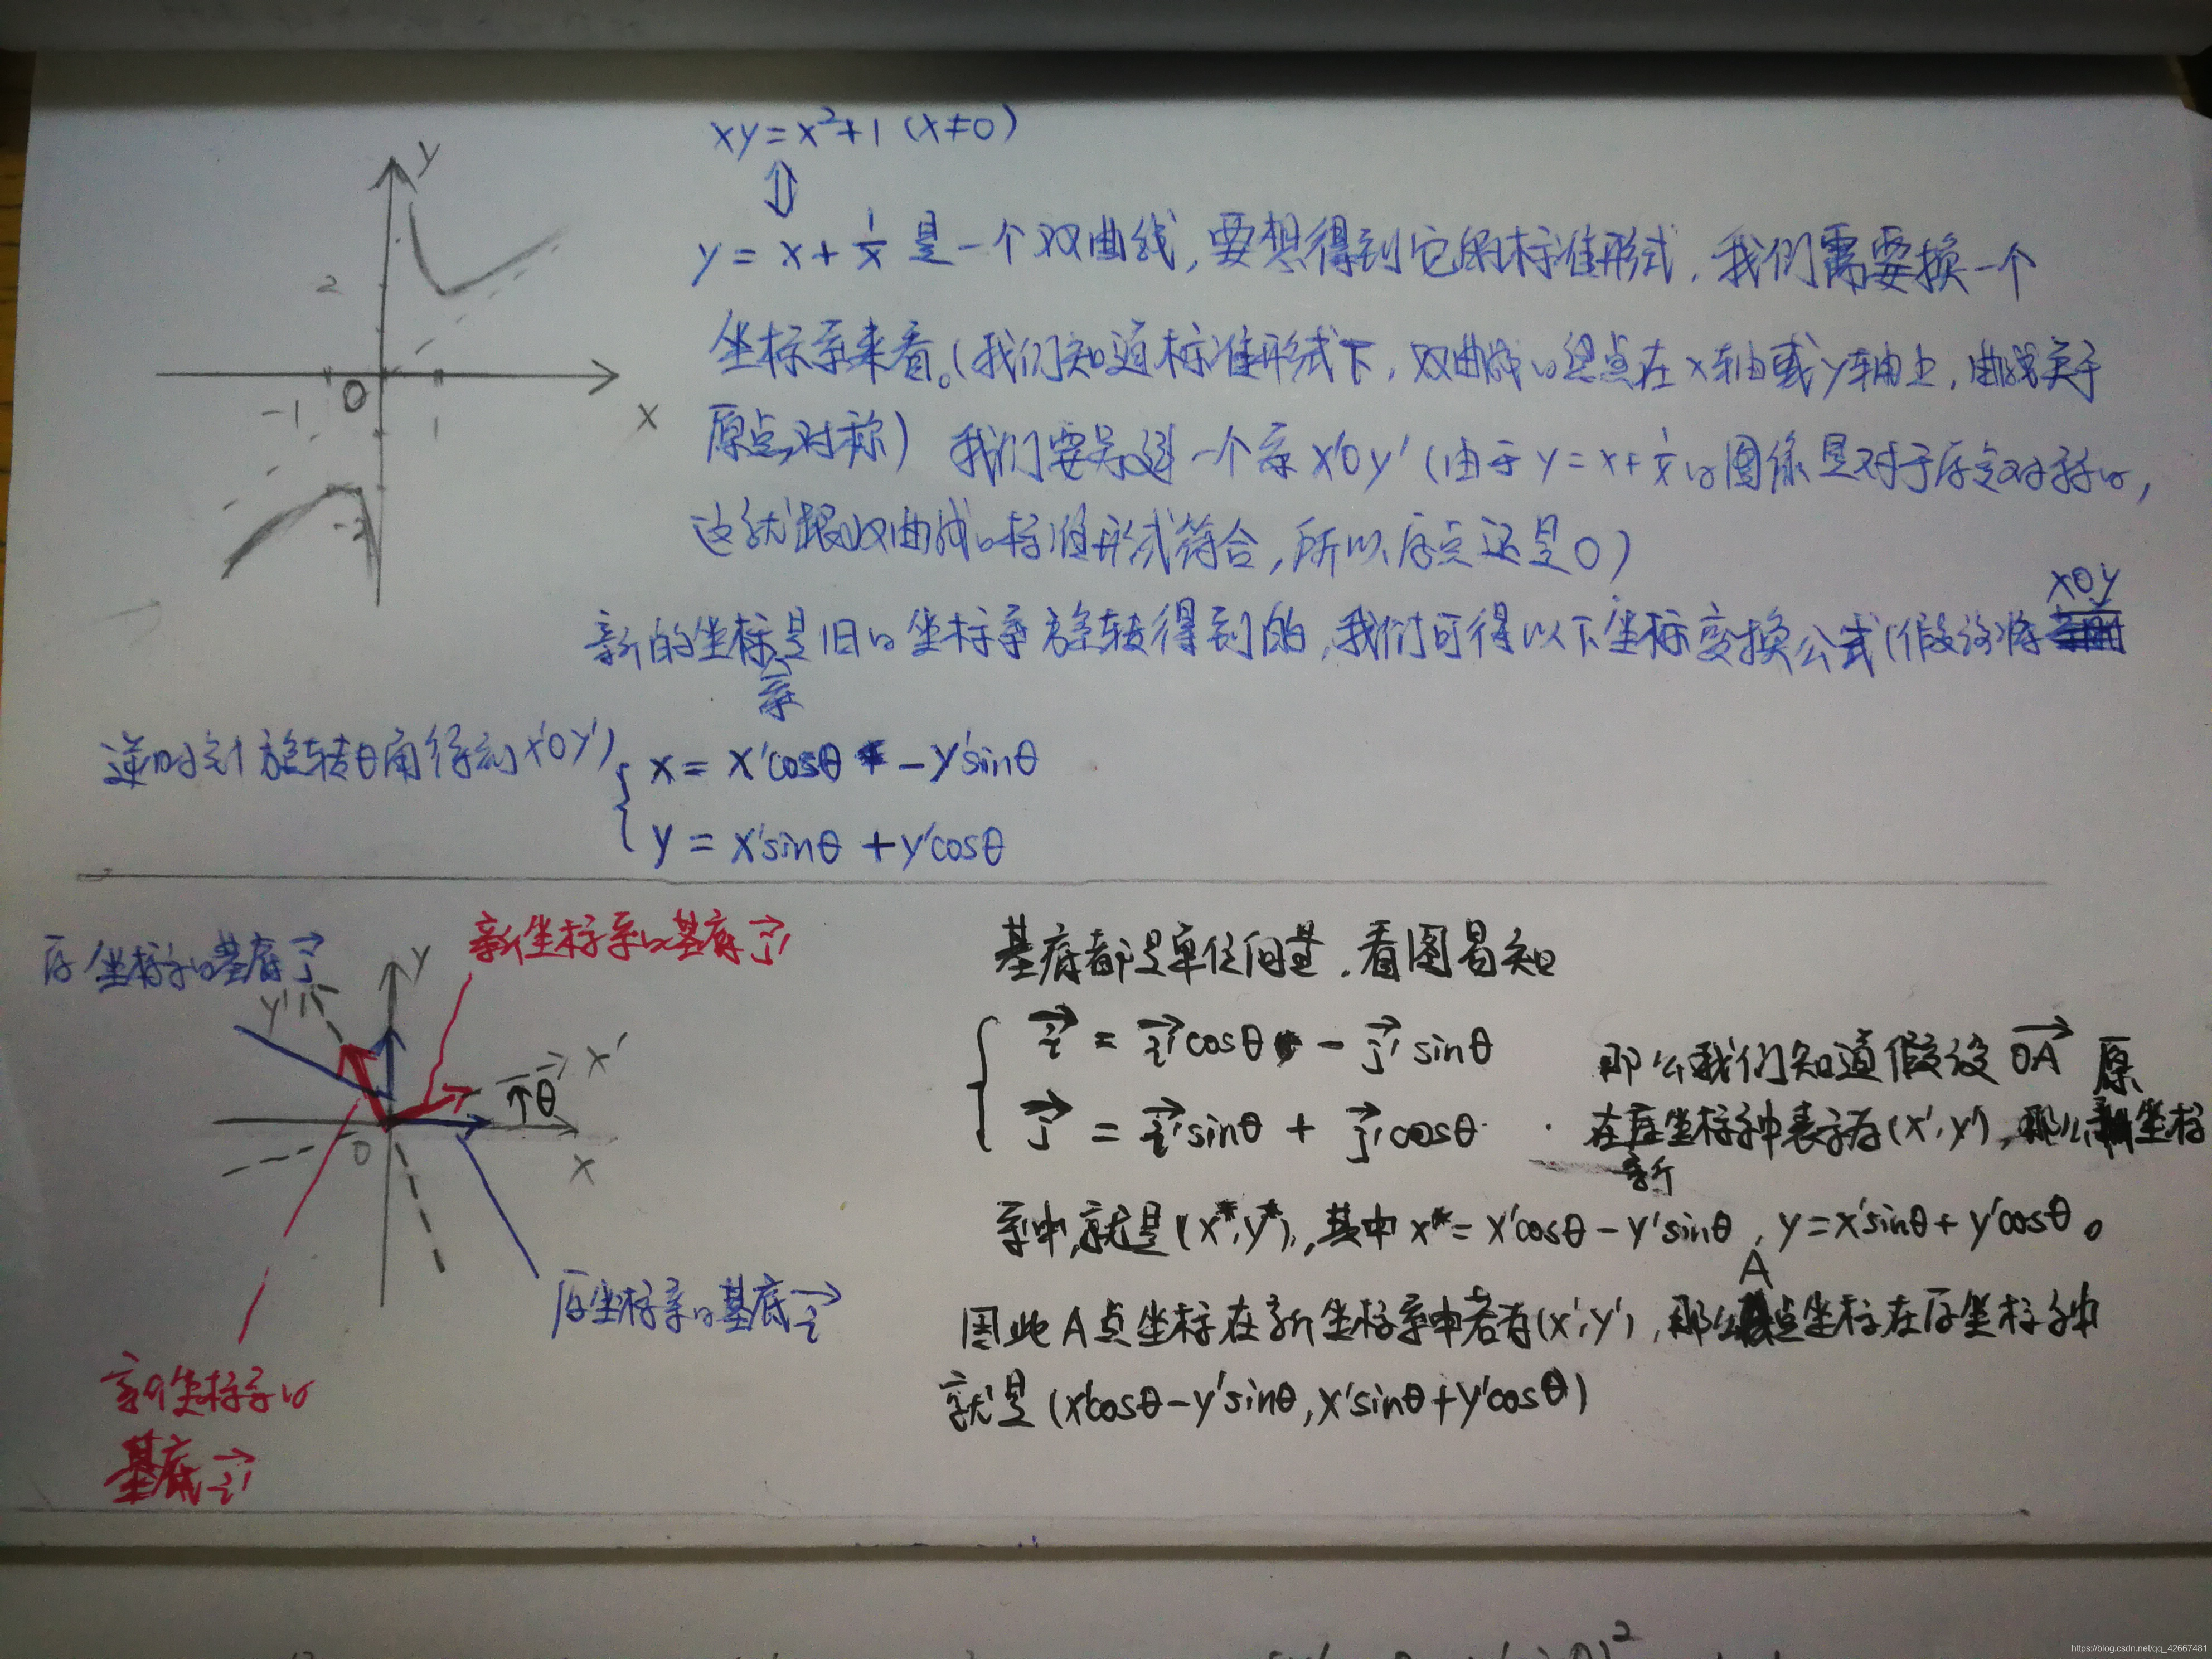 xy=x²+1 (x≠0)
⇕
y = x + 1/x 是一个双曲线,要想得到它的标准形式,我们需要换一个
坐标系来看。(我们知道标准形式下,双曲线的焦点在x轴或y轴上,曲线关于
原点对称) 我们要另建一个系 x'Oy' (由于 y = x + 1/x 的图像是对于原点对称的,
这就跟双曲线的标准形式符合,所以原点还是O)
新的坐标系是旧的坐标系旋转得到的,我们可得以下坐标变换公式(假设将 xOy
逆时针旋转θ角得到x'Oy')
x = x'cosθ - y'sinθ
y = x'sinθ + y'cosθ
y
2
-1
O
1
x
-2
原坐标系的基底 j→
新坐标系的基底 j'→
y'
y
x'
θ
O
x
原坐标系的基底 i→
新坐标系的
基底 i'→
基底都是单位向量,看图易知
i→ = i'→cosθ - j'→sinθ
j→ = i'→sinθ + j'→cosθ
那么我们知道假设 OA→
在新坐标系中表示为(x',y'),那么原坐标
系中,就是(x*,y*),其中 x* = x'cosθ - y'sinθ, y = x'sinθ + y'cosθ。
因此A点坐标在新坐标系中若为(x',y'),那么A点坐标在原坐标系中
就是(x'cosθ - y'sinθ, x'sinθ + y'cosθ)
https://blog.csdn.net/qq_42667481